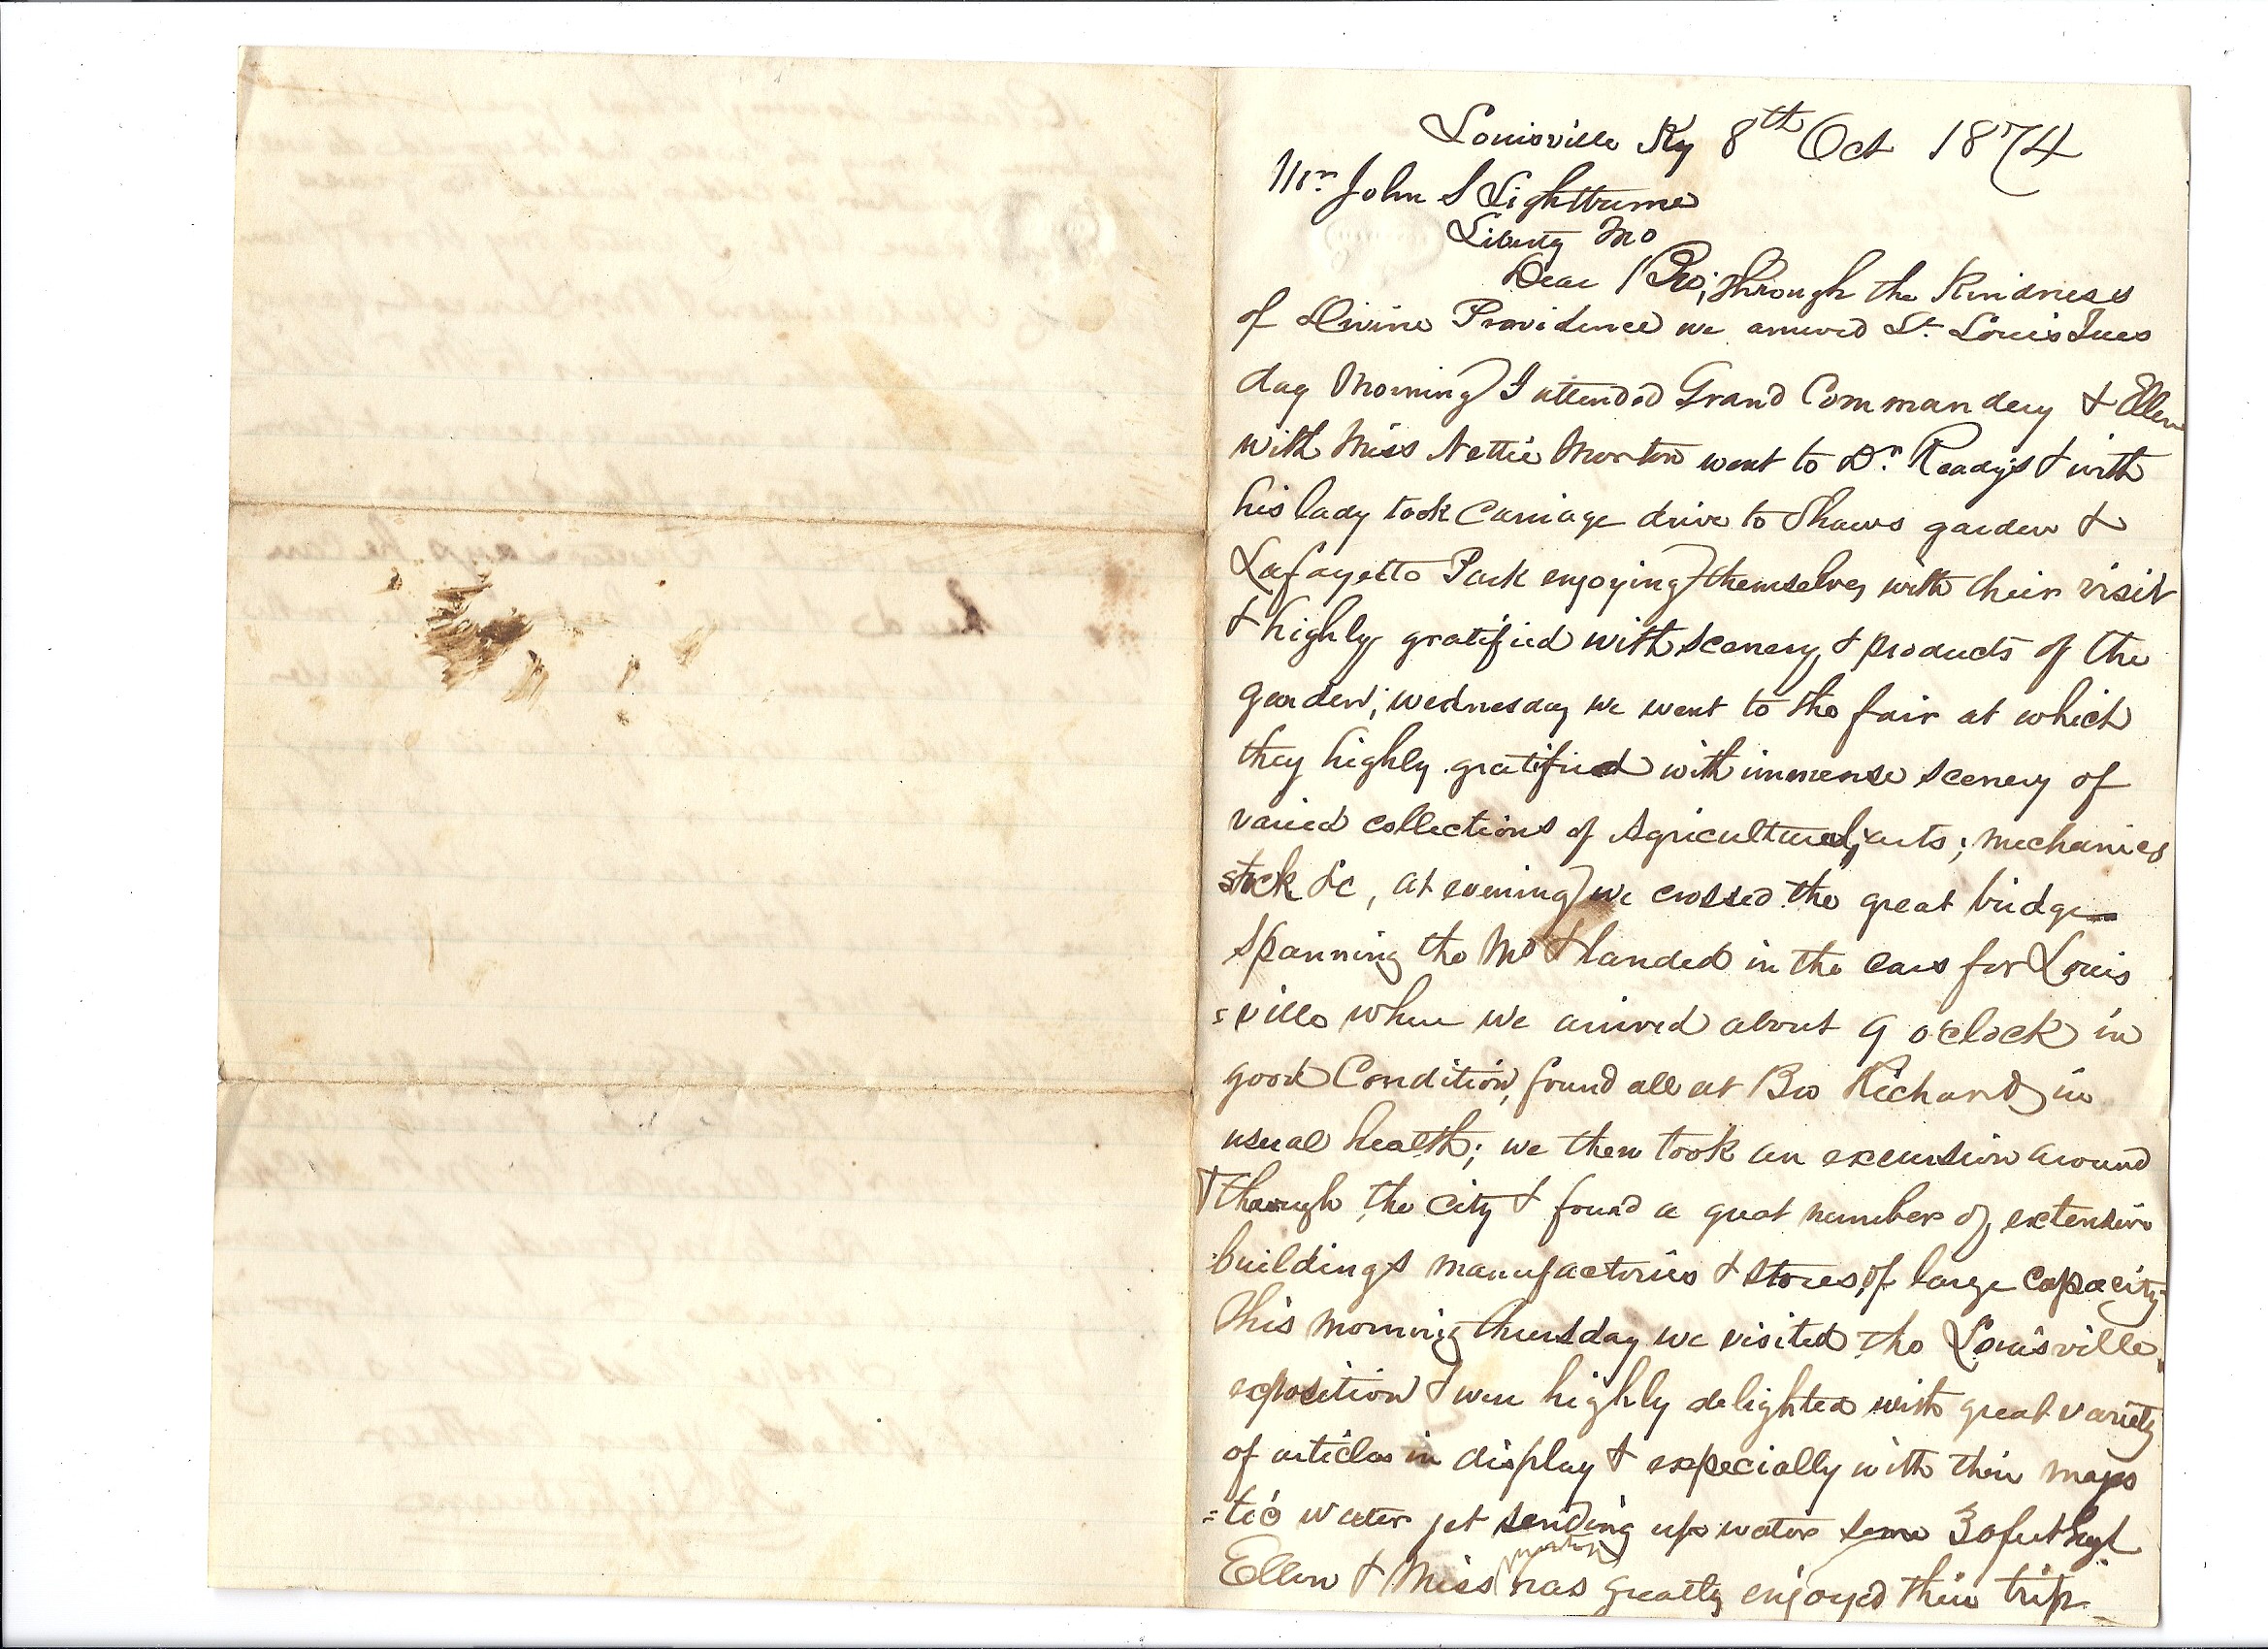 Louisville Ky 8th Oct 1874
Mr. John S Lightburne
Liberty Mo
Dear Bro; through the Kindness
of Divine Providence we arrived St. Louis Tues
day Morning I attended Grand Commandery & Ellen
with Miss Nettie Morton went to Dr. Readys & with
his lady took Carriage drive to Shaws garden &
Lafayette Park enjoying themselves with their visit
& highly gratified with scenery & products of the
garden; wednesday we went to the fair at which
they highly gratified with immense scenery of
varied collections of Agricultural, arts; mechanics
stock &c, at evening we crossed the great bridge
spanning the Mo & landed in the cars for Louis
=ville where we arrived about 9 o'clock in
good Condition, found all at Bro Richard in
usual health; we then took an excursion around
& through the city & found a great number of extensive
buildings manufactories & stores of large capacity
This morning thursday we visited the Louisville
exposition & were highly delighted with great variety
of articles in display & especially with their majes
=tic water jet sending up water some 30 feet high
Ellen & Miss Morton has greatly enjoyed their trip